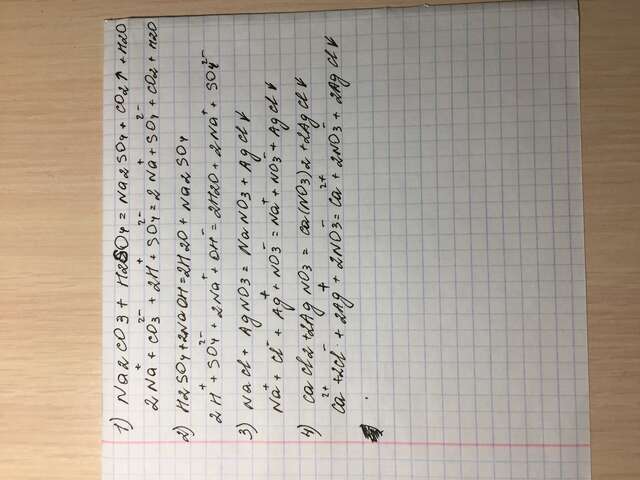 1) Na2CO3 + H2SO4 = Na2SO4 + CO2↑ + H2O
2Na⁺ + CO3²⁻ + 2H⁺ + SO4²⁻ = 2Na⁺ + SO4²⁻ + CO2 + H2O
2) H2SO4 + 2NaOH = 2H2O + Na2SO4
2H⁺ + SO4²⁻ + 2Na⁺ + OH⁻ = 2H2O + 2Na⁺ + SO4²⁻
3) NaCl + AgNO3 = NaNO3 + AgCl↓
Na⁺ + Cl⁻ + Ag⁺ + NO3⁻ = Na⁺ + NO3⁻ + AgCl↓
4) CaCl2 + 2AgNO3 = Ca(NO3)2 + 2AgCl↓
Ca²⁺ + 2Cl⁻ + 2Ag⁺ + 2NO3⁻ = Ca²⁺ + 2NO3⁻ + 2AgCl↓